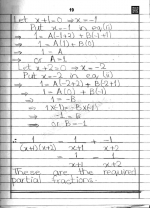 19
Let x+1=0 ⇒ x=-1
Put x=-1 in eq (ii)
⇒ 1=A(-1+2)+B(-1+1)
⇒ 1=A(1)+B(0)
⇒ 1=A
⇒ or A=1
Let x+2=0 ⇒ x=-2
Put x=-2 in eq (ii)
⇒ 1=A(-2+2)+B(-2+1)
⇒ 1=A(0)+B(-1)
⇒ 1=-B
⇒ -1=B
⇒ or B=-1
∴ 1/(x+1)(x+2) = 1/x+1 + -1/x+2
= 1/x+1 - 1/x+2
These are the required
partial fractions.